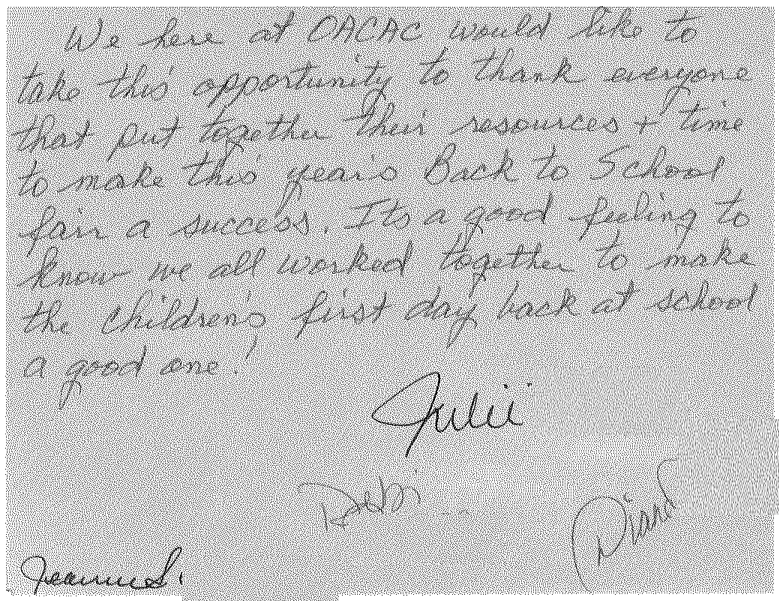 We here at OACAC would like to
take this opportunity to thank everyone
that put together their resources + time
to make this year's Back to School
fair a success. Its a good feeling to
know we all worked together to make
the children's first day back at school
a good one!
Julie
Debi
Diane
Jeanne S.